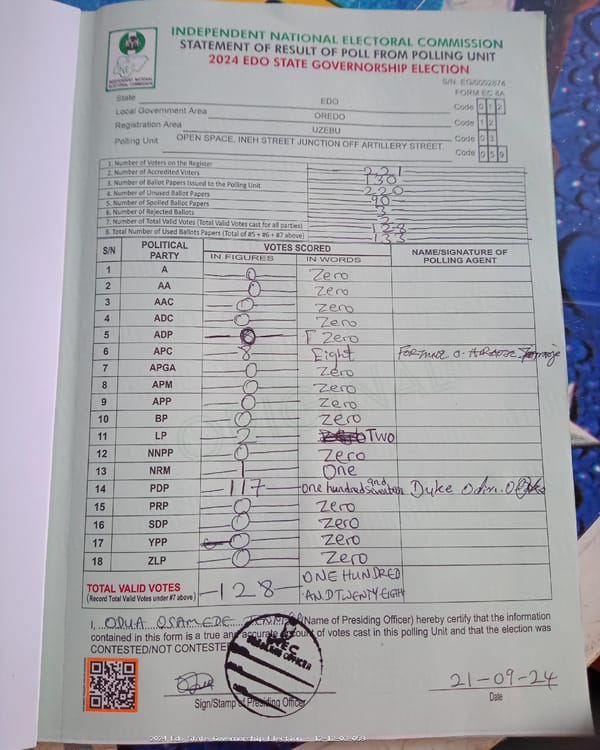 INDEPENDENT NATIONAL ELECTORAL COMMISSION
STATEMENT OF RESULT OF POLL FROM POLLING UNIT
2024 EDO STATE GOVERNORSHIP ELECTION
INDEPENDENT NATIONAL ELECTORAL COMMISSION
S/N EG/0002874
FORM EC 8A
State EDO Code 0 1 2
Local Government Area OREDO Code 1 2
Registration Area UZEBU Code 0 3
Polling Unit OPEN SPACE, INEH STREET JUNCTION OFF ARTILLERY STREET Code 0 5 9
1. Number of Voters on the Register 221
2. Number of Accredited Voters 130
3. Number of Ballot Papers Issued to the Polling Unit 220
4. Number of Unused Ballot Papers 90
5. Number of Spoiled Ballot Papers 3
6. Number of Rejected Ballots 2
7. Number of Total Valid Votes (Total Valid Votes cast for all parties) 128
8. Total Number of Used Ballots Papers (Total of #5 + #6 + #7 above) 133
S/N POLITICAL PARTY VOTES SCORED NAME/SIGNATURE OF POLLING AGENT
IN FIGURES IN WORDS
1 A 0 Zero
2 AA 0 Zero
3 AAC 0 Zero
4 ADC 0 Zero
5 ADP 0 Zero
6 APC 8 Eight
7 APGA 0 Zero
8 APM 0 Zero
9 APP 0 Zero
10 BP 0 Zero
11 LP 2 Two
12 NNPP 0 Zero
13 NRM 1 One
14 PDP 117 One hundred and seventeen Duke
15 PRP 0 Zero
16 SDP 0 Zero
17 YPP 0 Zero
18 ZLP 0 Zero
TOTAL VALID VOTES 128 ONE HUNDRED
(Record Total Valid Votes under #7 above) AND TWENTY EIGHT
I, ODUA OSAMEDE (Name of Presiding Officer) hereby certify that the information
contained in this form is a true and accurate account of votes cast in this polling Unit and that the election was
CONTESTED/NOT CONTESTED
INEC
PRESIDING OFFICER
21-09-24
Sign/Stamp of Presiding Officer Date
2024 Edo State Governorship Election - 12-12-03-059